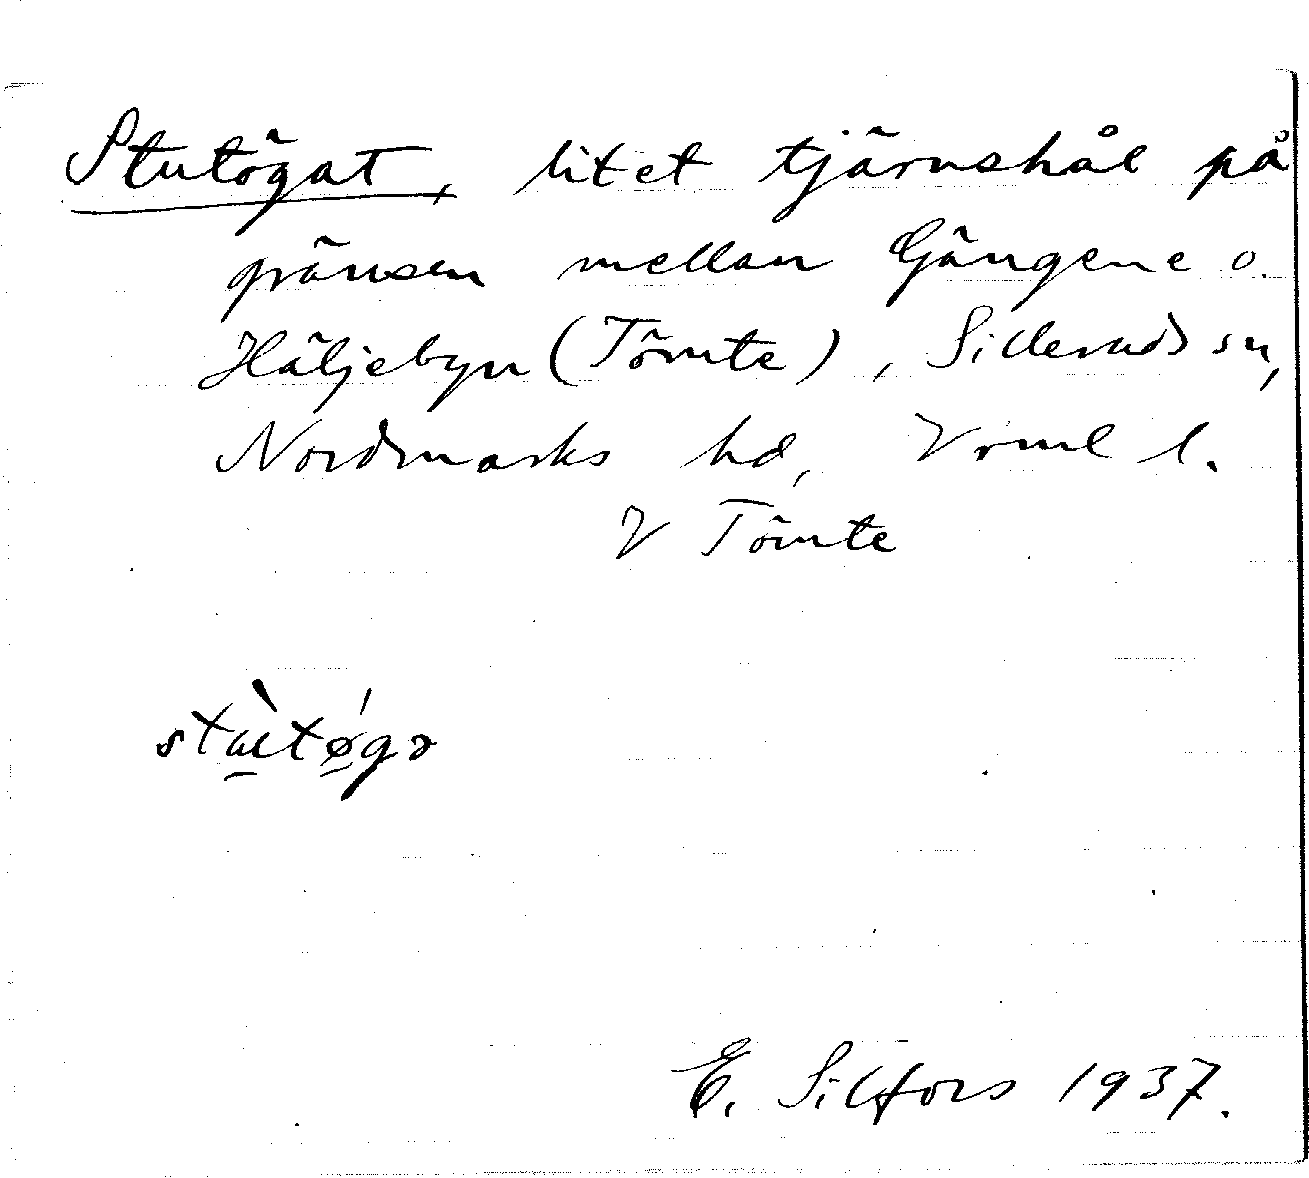 Stutögat, litet tjärnshål på
gränsen mellan Gängene o.
Häljebyn (Tömte), Silleruds sn,
Nordmarks hd, Vrml l.
V Tömte
stù̲tǿ̲gə
E. Silfors 1937.